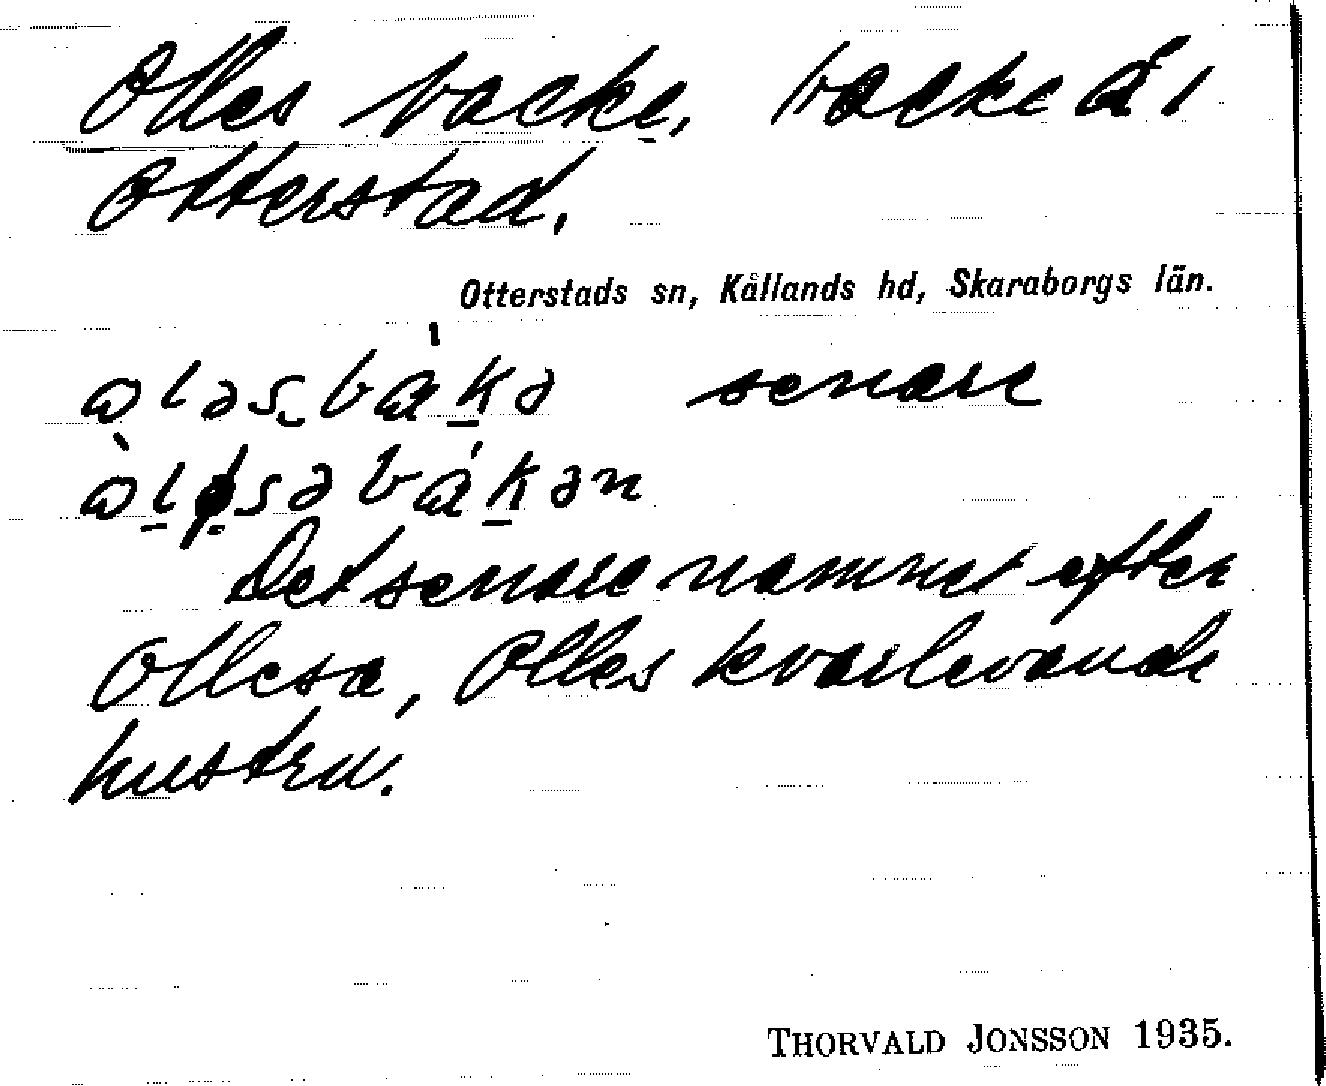 Olles backe, backe å 1
Otterstad.
Otterstads sn, Kållands hd, Skaraborgs län.
senare
Det senare namnet efter
Ollesa, Olles kvarlevande
hustru.
THORVALD JONSSON 1935.